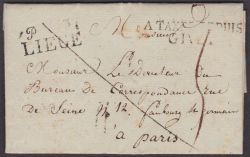 P
LIEGE
A TAXER DEPUIS
M
Monsieur Le Directeur du
Bureau de Correspondance rue
de Seine N° 12 Faubourg St Germain
à Paris